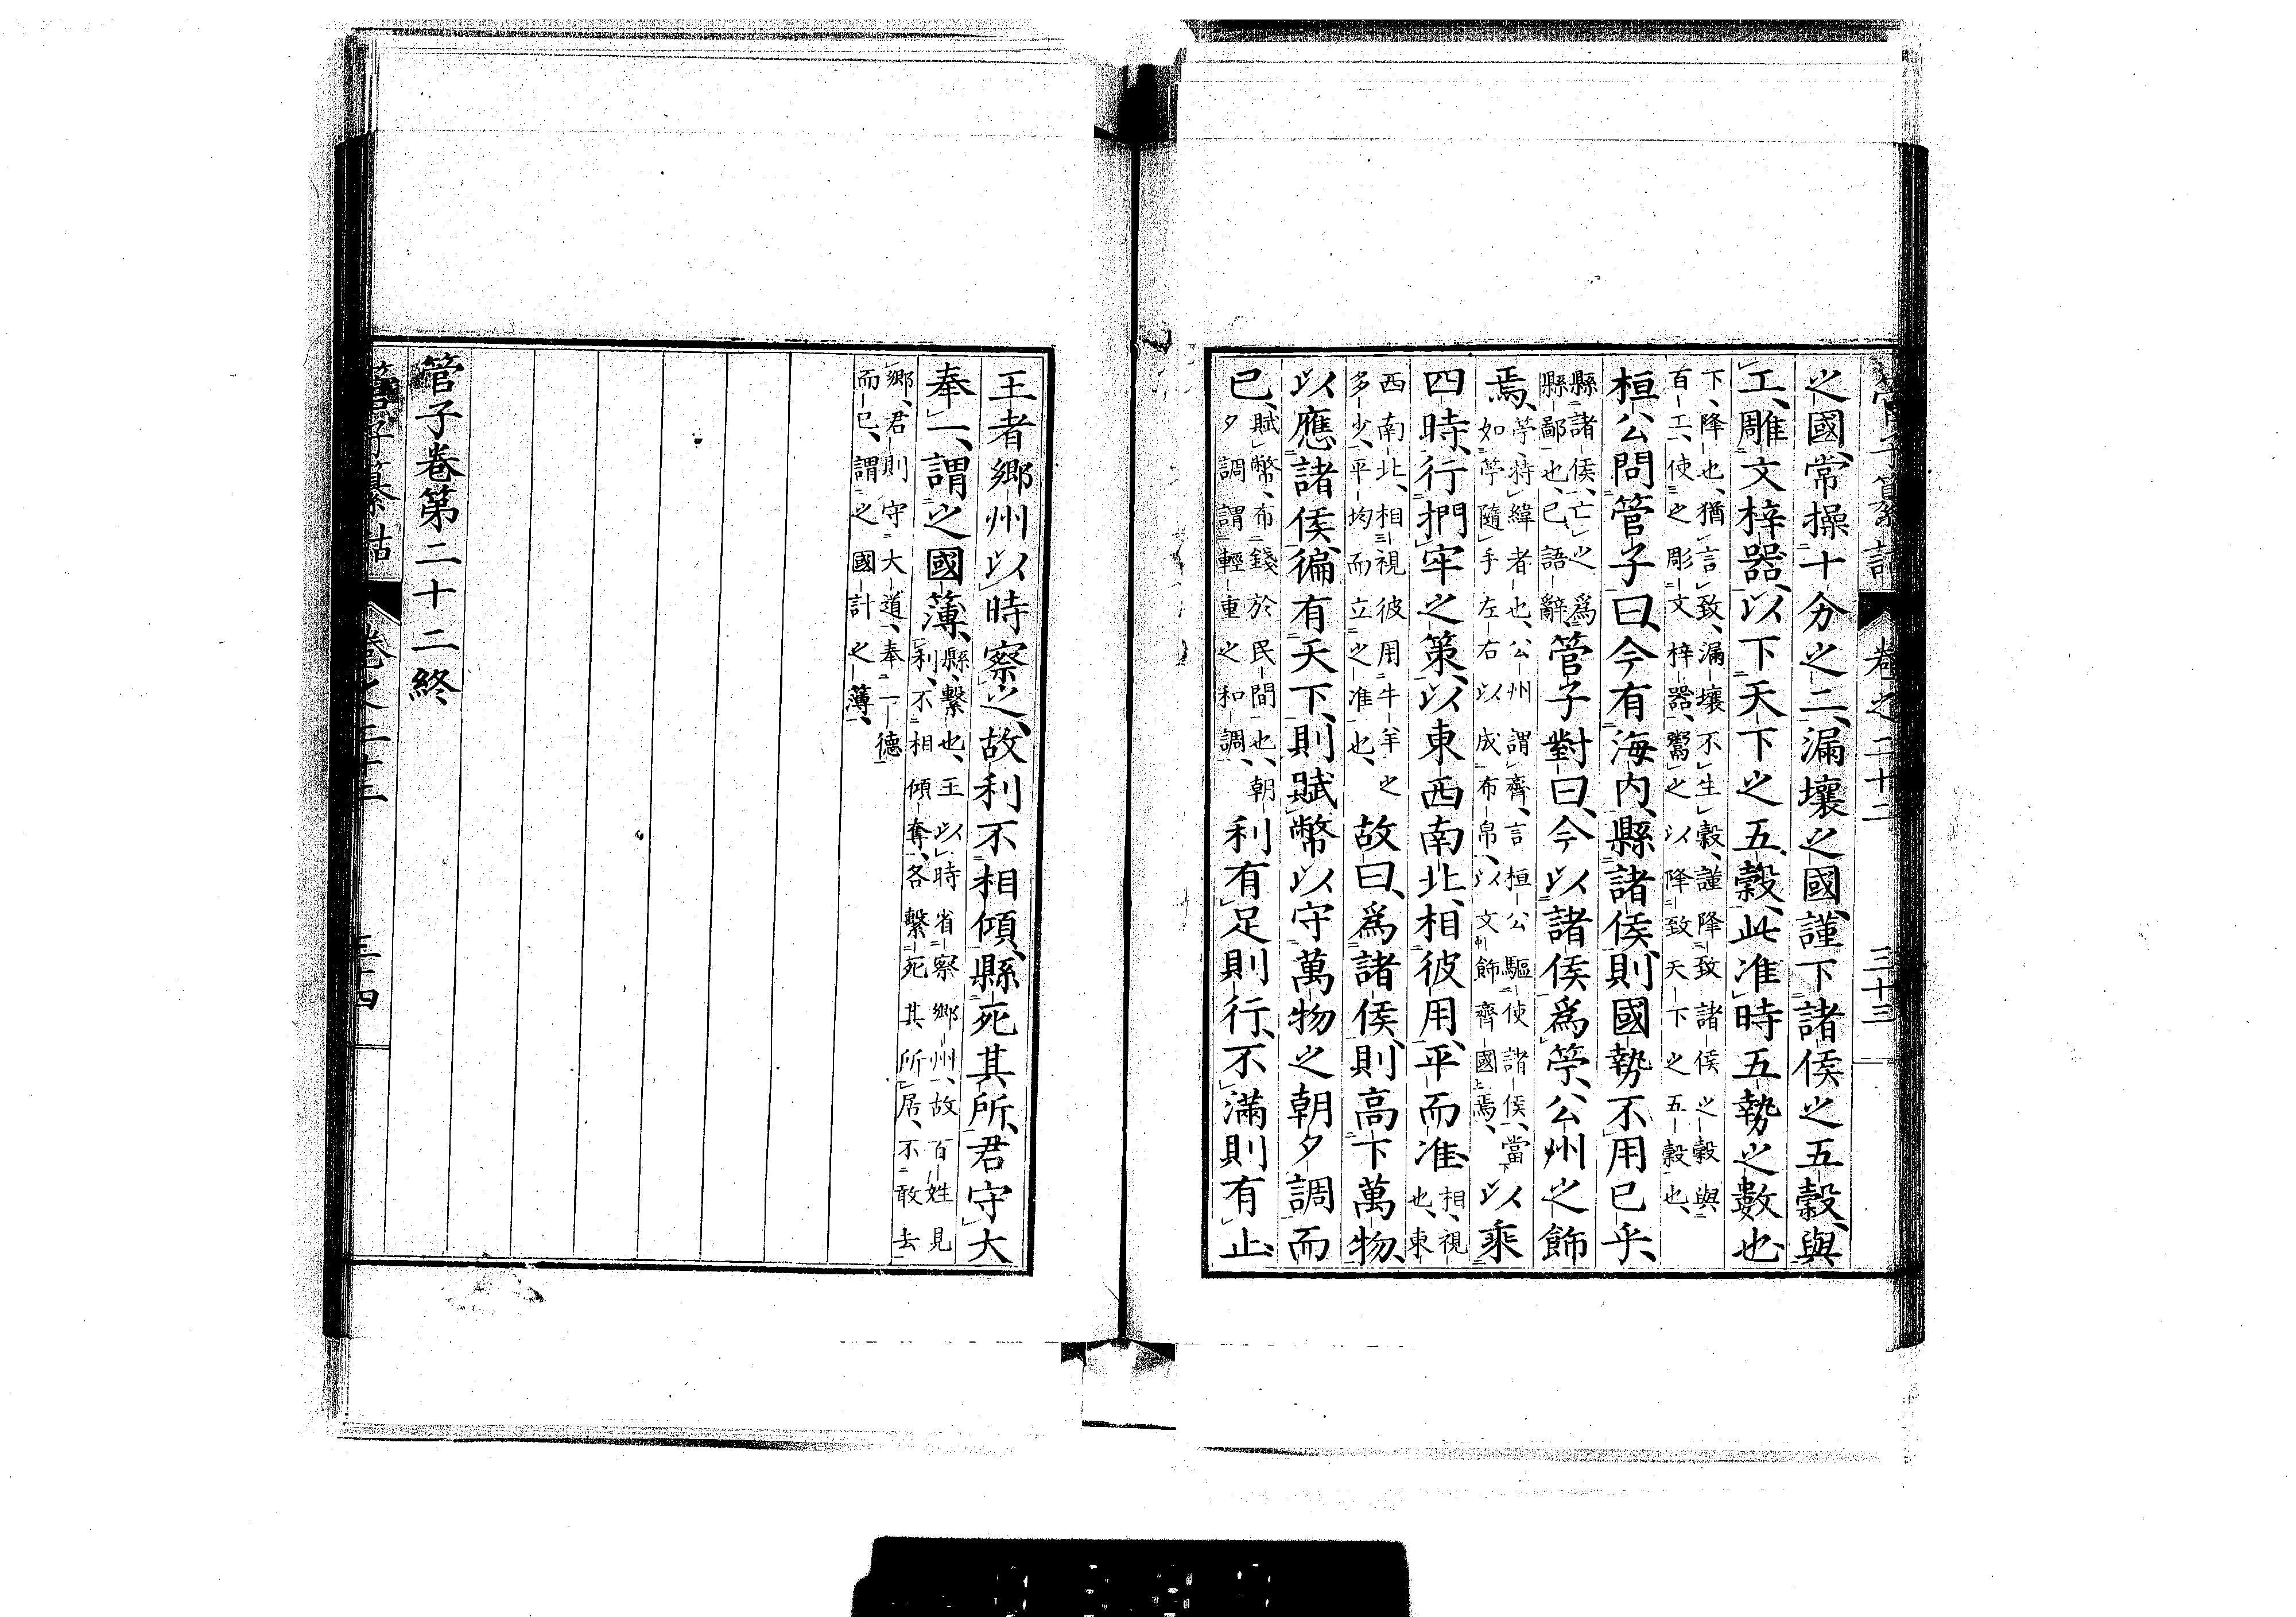 管子纂詁 卷之二十二 三十三
之國、常操十分之二、漏壤之國、謹下諸侯之五穀、與
工、雕文梓器、以下天下之五穀、此准時五勢之數也、
下、降也、猶言致、漏壤不生穀、謹降致諸侯之穀、與
百工、使之彫文梓器、鬻之以降致天下之五穀也、
桓公問管子曰、今有海内、縣諸侯、則國勢不用已乎、
縣諸侯、亡之爲
縣鄙也、已語辭、
管子對曰、今以諸侯爲䇦、公州之飾
焉、
䇦、持緯者也、公州謂齊、言桓公驅使諸侯、當
如䇦隨手左右以成布帛、以文飾齊國焉、
以乘
四時、行捫牢之策、以東西南北、相彼用、平而准、
相、視
也、東
西南北、相視彼用牛羊之
多少、平均而立之准也、
故曰、爲諸侯、則高下萬物、
以應諸侯、徧有天下、則賦幣以守萬物之朝夕、調而
已、
賦幣、布錢於民間也、朝
夕調謂輕重之和調、
利有足則行、不滿則有止、
王者鄉州以時察之、故利不相傾、縣死其所、君守大
奉一、謂之國簿、
縣、繫也、王以時省察鄉州、故百姓見
利、不相傾奪、各繫死其所居、不敢去
鄉、君則守大道、奉一德
而已、謂之國計之薄、
管子卷第二十二終
管子纂詁 卷之二十二 三十四